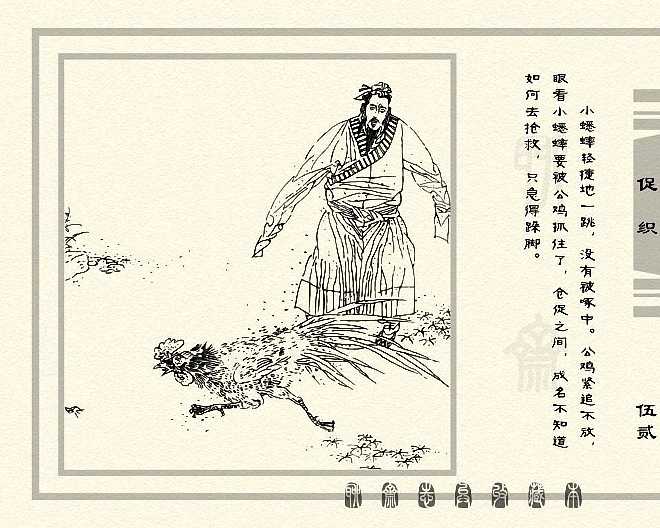 小蟋蟀轻捷地一跳，没有被啄中。公鸡紧追不放，
眼看小蟋蟀要被公鸡抓住了，仓促之间，成名不知道
如何去抢救，只急得跺脚。
促织
伍贰
聊斋志异收藏本